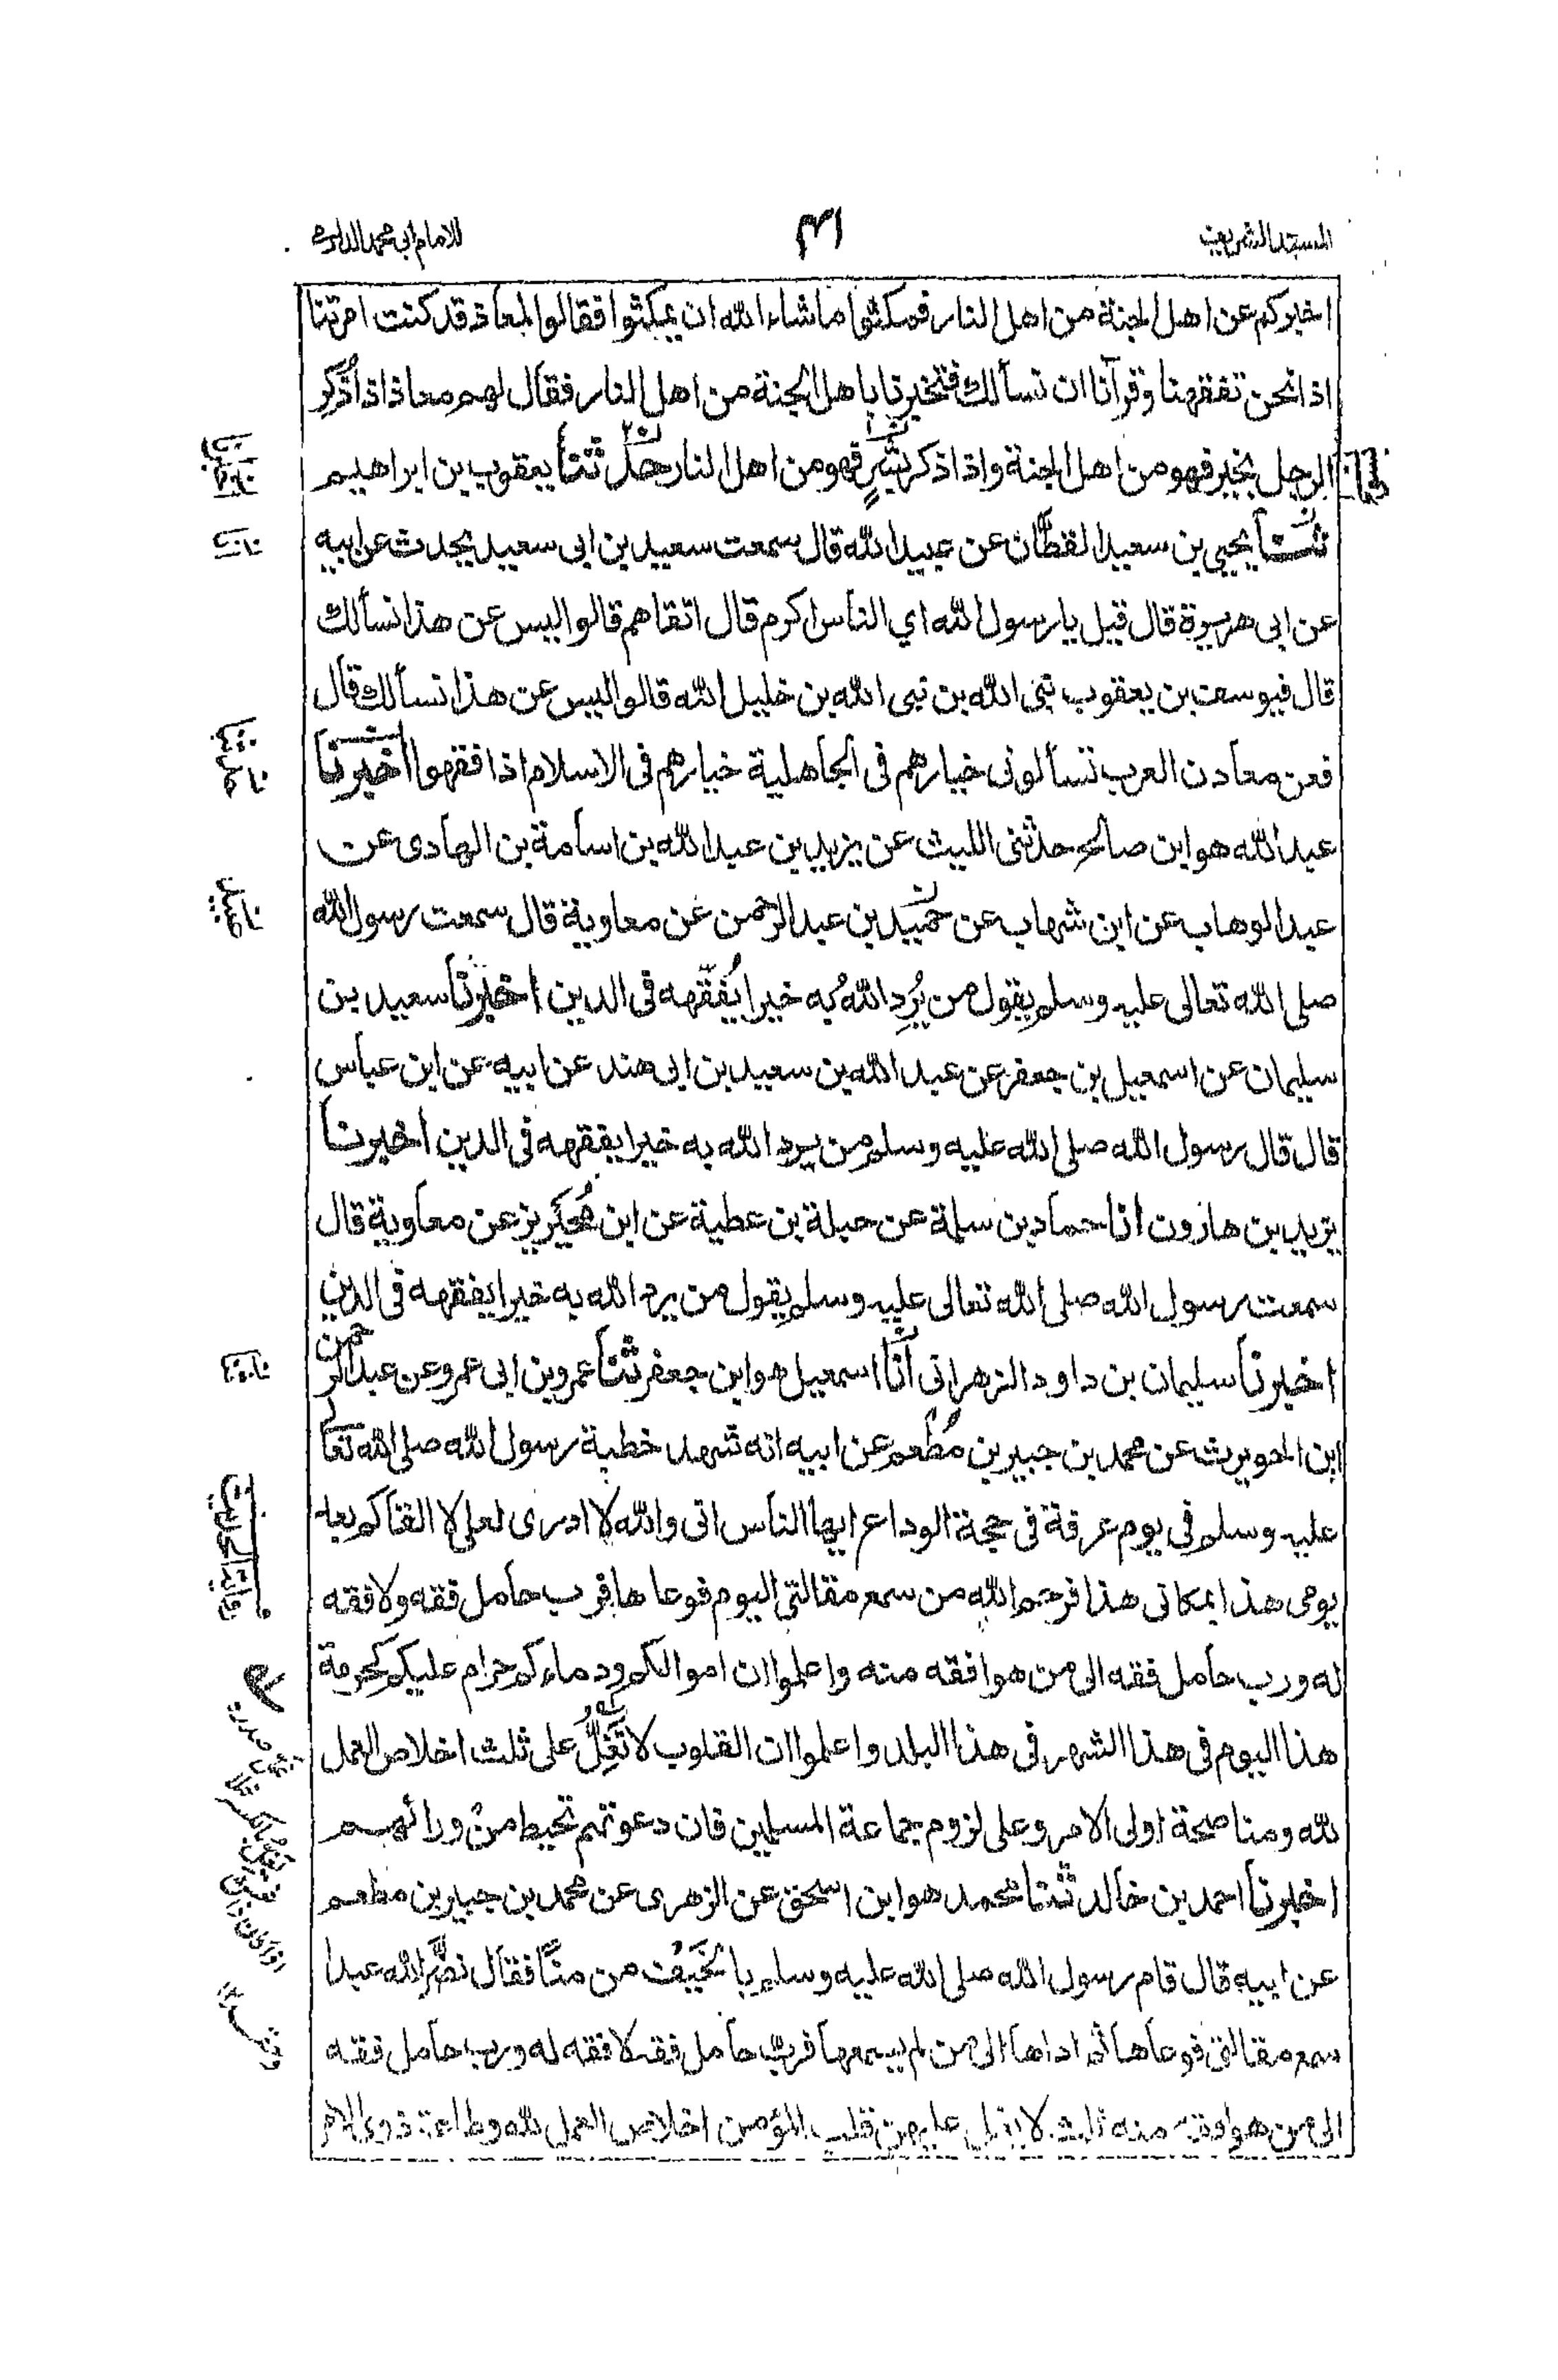 المسند الشريف
للامام ابي محمد الدارمي
اخبركم عن اهل الجنة من اهل النار فمكثوا ما شاء الله ان يمكثوا فقالوا لمعاذ قد كنت امرتنا
اذا نحن تفقهنا وقرأنا ان نسألك فتخبرنا باهل الجنة من اهل النار فقال لهم معاذ اذا ذُكِر
الرجل بخير فهو من اهل الجنة واذا ذكر بشرٍّ فهو من اهل النار ثنا يعقوب بن ابراهيم
ثنا يحيى بن سعيد القطّان عن عبيد الله قال سمعت سعيد بن ابى سعيد يحدث عن ابيه
عن ابى هريرة قال قيل يا رسول الله اي الناس اكرم قال اتقاهم قالوا ليس عن هذا نسألك
قال فيوسف بن يعقوب نبى الله بن نبى الله بن خليل الله قالوا ليس عن هذا نسألك قال
فعن معادن العرب تسألونى خيارهم فى الجاهلية خيارهم فى الاسلام اذا فقهوا اخبرنا
عبد الله هو ابن صالح حدثنى الليث عن يزيد بن عبد الله بن اسامة بن الهادى عن
عبد الوهاب عن ابن شهاب عن حُمَيد بن عبد الرحمن عن معاوية قال سمعت رسول الله
صلى الله تعالى عليه وسلم يقول من يُرِدِ اللهُ به خيرا يُفَقّهه فى الدين اخبرنا سعيد بن
سليمان عن اسمعيل بن جعفر عن عبد الله بن سعيد بن ابى هند عن ابيه عن ابن عباس
قال قال رسول الله صلى الله عليه وسلم من يرد الله به خيرا يفقهه فى الدين اخبرنا
يزيد بن هارون انا حماد بن سلمة عن جبلة بن عطية عن ابن مُحَيْريز عن معاوية قال
سمعت رسول الله صلى الله تعالى عليه وسلم يقول من يرد الله به خيرا يفقهه فى الدين
اخبرنا سليمان بن داود الزهرانى انا اسمعيل هو ابن جعفر ثنا عمرو بن ابى عمرو عن عبد الرحمن
ابن الحويرث عن محمد بن جبير بن مُطْعم عن ابيه انه شهد خطبة رسول الله صلى الله تعالى
عليه وسلم فى يوم عرفة فى حجة الوداع ايها الناس انى والله لا ادرى لعلى لا القاكم بعد
يومى هذا بمكانى هذا فرحم الله من سمع مقالتى اليوم فوعاها فرب حامل فقه ولا فقه
له ورب حامل فقه الى من هو افقه منه واعلموا ان اموالكم ودماءكم حرام عليكم كحرمة
هذا اليوم فى هذا الشهر فى هذا البلد واعلموا ان القلوب لا تَغِلُّ على ثلث اخلاص العمل
لله ومناصحة اولى الامر وعلى لزوم جماعة المسلمين فان دعوتهم تحيط من ورائهم
اخبرنا احمد بن خالد ثنا محمد هو ابن اسحق عن الزهرى عن محمد بن جبير بن مطعم
عن ابيه قال قام رسول الله صلى الله عليه وسلم بالخَيْف من منًا فقال نضّر الله عبدا
سمع مقالتى فوعاها ثم اداها الى من لم يسمعها فرب حامل فقه لا فقه له ورب حامل فقه
الى من هو افقه منه ثلث لا يغل عليهن قلب المؤمن اخلاص العمل لله وطاعة ذوى الامر